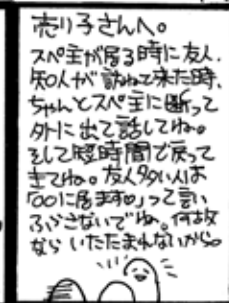 売り子さんへ。
スペ主が居る時に友人、
知人が訪ねて来た時、
ちゃんとスペ主に断って
外に出て話してね。
そして短時間で戻って
きてね。友人多い人は
「○○に居ます♥」って言い
ふらさないでね。何故
なら いたたまれないから。